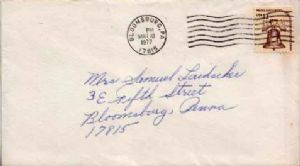 BLOOMSBURG, PA
PM
MAR 18
1977
17815
Mrs Samuel Leidacker
3 E Fifth Street
Bloomsburg Penna
17815